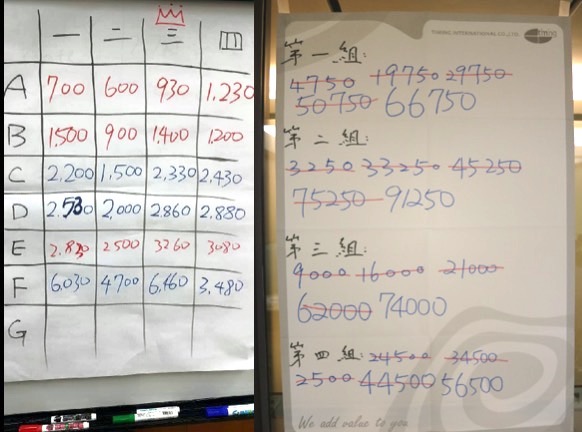 一 二 三 四
A 700 600 930 1,230
B 1,500 900 1,400 1,200
C 2,200 1,500 2,330 2,430
D 2,530 2,000 2,860 2,880
E 2,830 2500 3260 3080
F 6,030 4700 6,460 3,480
G
TIMING INTERNATIONAL CO.,LTD.
第一組:
4750 19750 29750
50750 66750
第二組:
3250 33250 45250
75250 91250
第三組:
9000 16000 21000
62000 74000
第四組: 24500 34500
2500 44500 56500
We add value to you